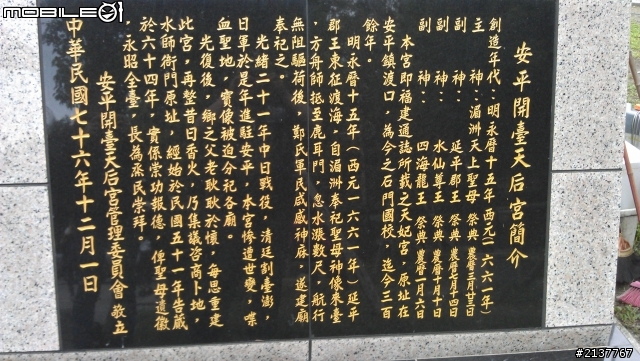 mobile01
安平開臺天后宮簡介
創造年代：明永曆十五年西元(一六六一年)
主　神：湄洲天上聖母 祭典 農曆三月廿三日
副　神：延平郡王 祭典 農曆七月十四日
副　神：水仙尊王 祭典 農曆十月十日
副　神：四海龍王 祭典 農曆一月六日
本宮即福建通誌所載之天妃宮，原址在
安平鎮渡口，為今之石門國校，迄今三百
餘年。
明永曆十五年（西元一六六一年）延平
郡王東征渡海，自湄洲奉祀聖母神像來臺
，方舟師抵至鹿耳門，忽水漲數尺，航行
無阻驅荷後，鄭氏軍民咸感神庥，遂建廟
奉祀之。
光緒二十一年中日戰役，清廷割臺澎，
日軍於是年進駐安平，本宮慘遭世變，喋
血聖地，寶像被迫分祀各廟。
光復後，鄉之父老耿耿於懷，每思重建
此宮，再整昔日香火，乃集議咨商卜地，
水師衙門原址，經始於民國五十一年告蕆
於六十四年，實係崇功報德，俾聖母遺徽
，永昭全臺，長為蒸民崇拜。
安平開臺天后宮管理委員會 敬立
中華民國七十六年十二月一日
#2137767